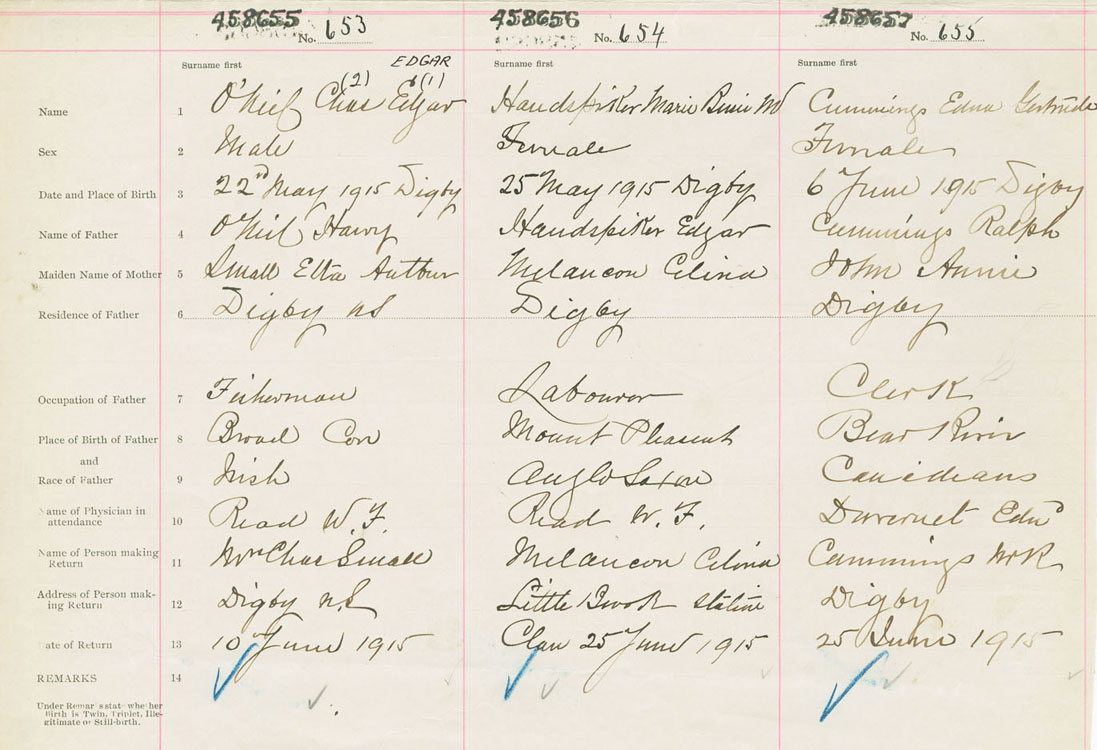 458655 458656 458657
No. 653 No. 654 No. 655
Surname first EDGAR Surname first Surname first
(2) (1)
Name 1 O'Neil Chas Edgar Handspiker Marie M Cummings Edna Gertrude
Sex 2 Male Female Female
Date and Place of Birth 3 22nd May 1915 Digby 25 May 1915 Digby 6 June 1915 Digby
Name of Father 4 O'Neil Harry Handspiker Edgar Cummings Ralph
Maiden Name of Mother 5 Small Etta Melancon Celina John Annie
Residence of Father 6 Digby NS Digby Digby
Occupation of Father 7 Fisherman Labourer Clerk
Place of Birth of Father 8 Broad Cove Mount Pleasant Bear River
and
Race of Father 9 Irish Anglo Saxon Canadians
Name of Physician in
attendance 10 Read W. F. Read W. F. Duvernet Edwd
Name of Person making
Return 11 Mrs Chas Small Melancon Celina Cummings
Address of Person mak-
ing Return 12 Digby NS Little Brook Station Digby
Date of Return 13 10 June 1915 Clare 25 June 1915 25 June 1915
REMARKS 14
Under Remarks state whether
Birth is Twin, Triplet, Ille-
gitimate or Still-birth.